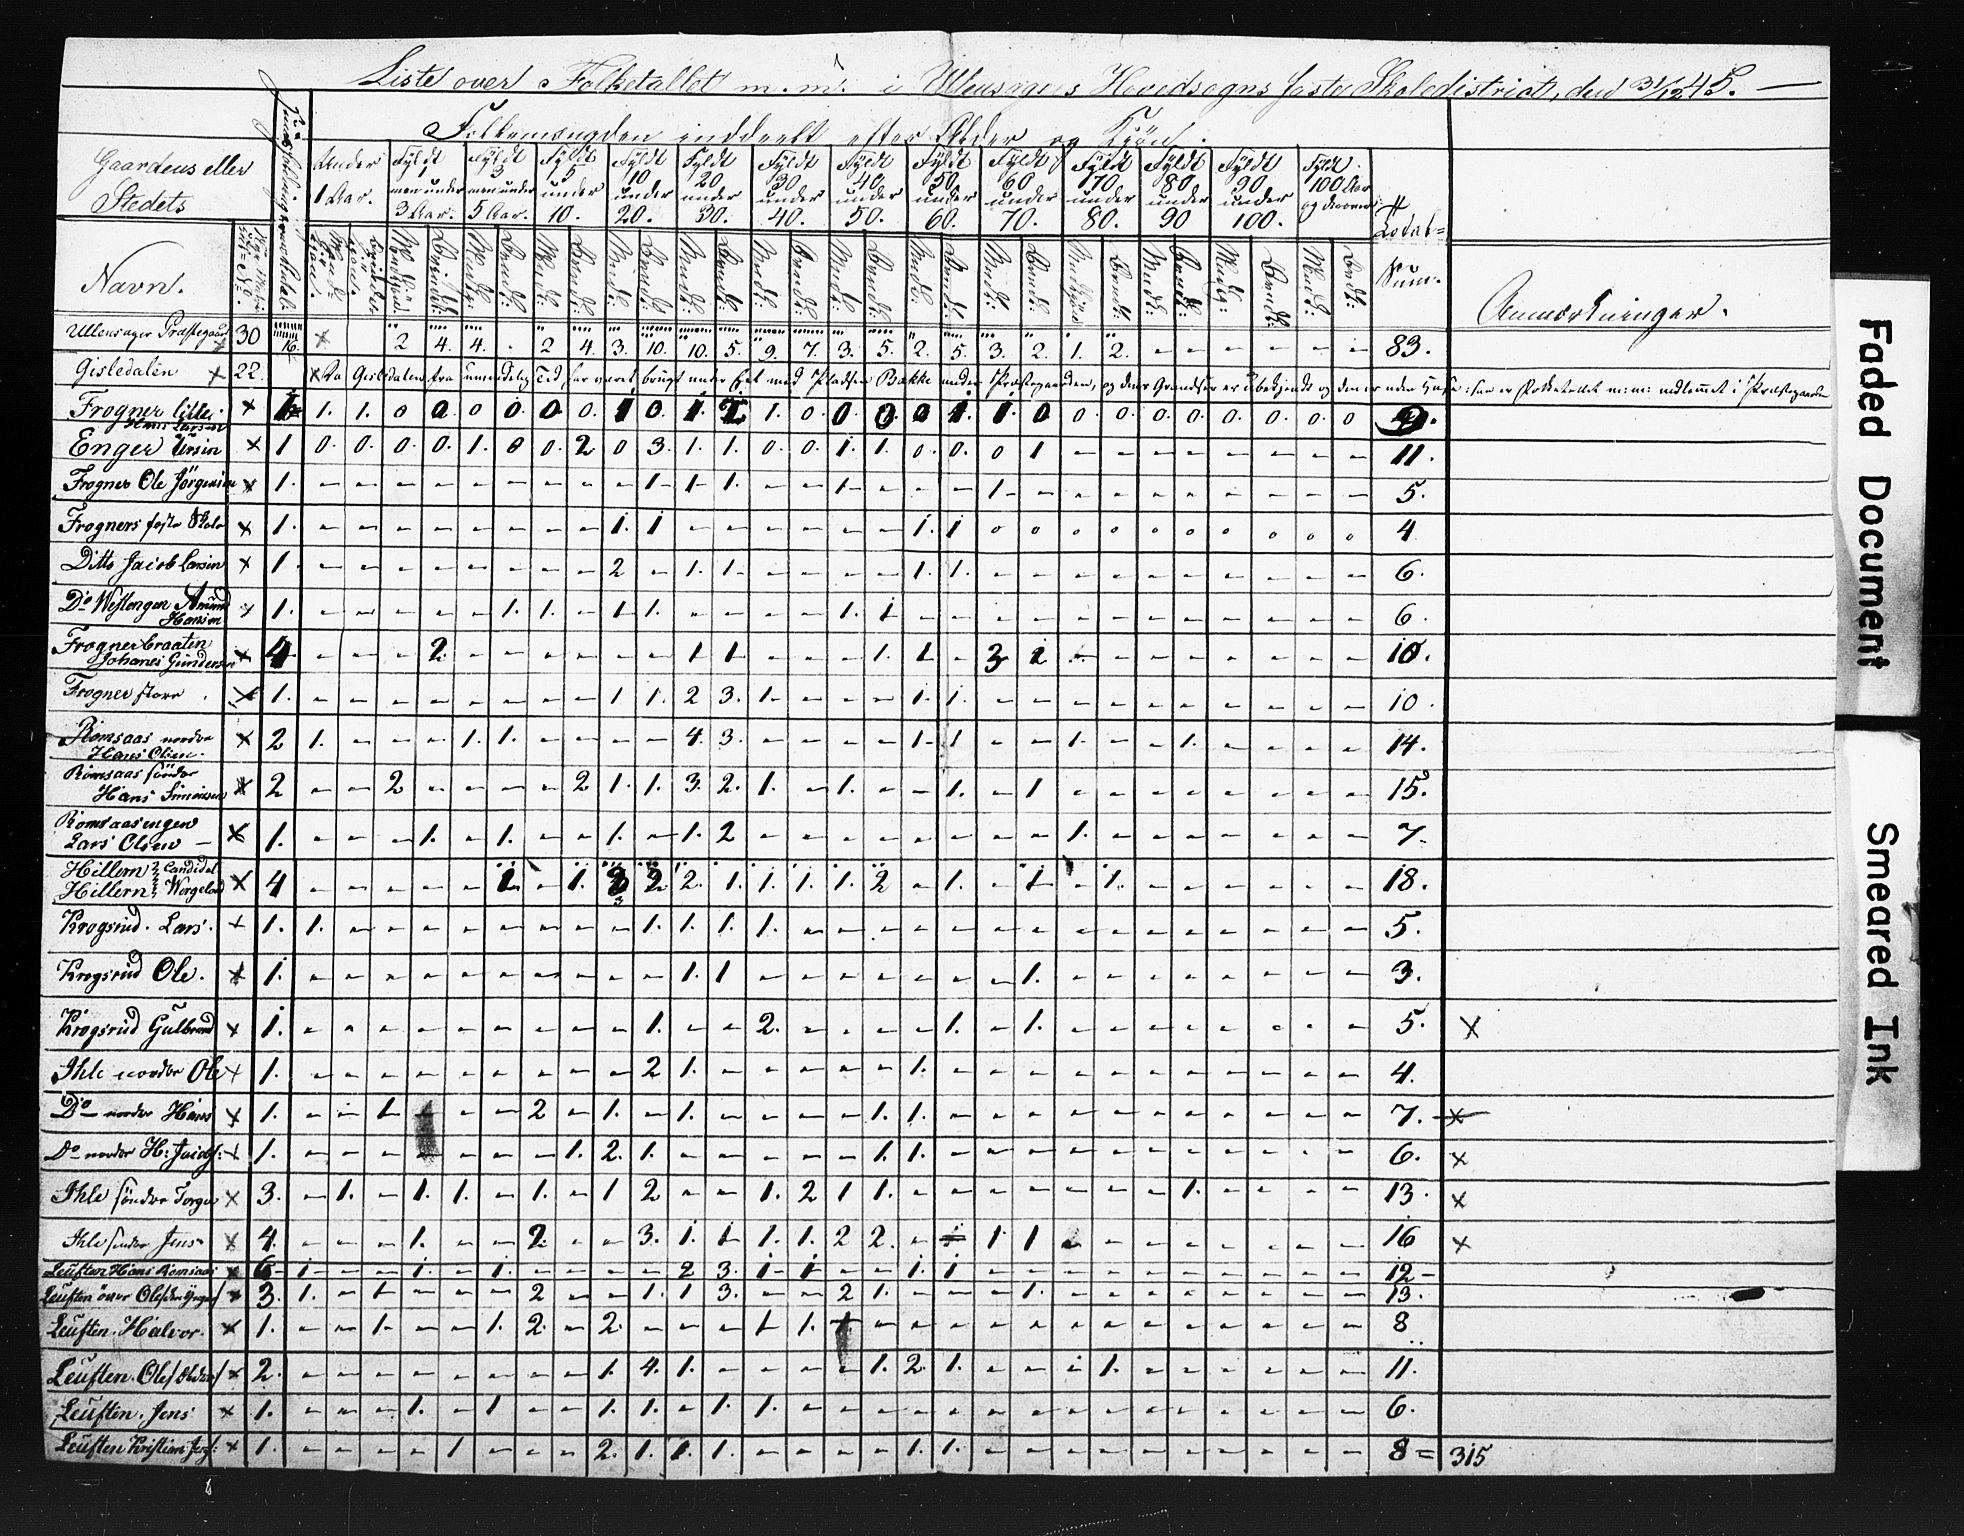 Liste over Folketallet m. m. i Ullensagers Hovedsogns faste Skoledistrict, den 31/12 45. —
Folkemængden inddeelt efter Alder og Kjön.
Gaardens eller Stedets
Navn.
Under 1 Aar.
Fyldt 1 men under 3 Aar.
Fyldt 3 men under 5 Aar.
Fyldt 5 under 10.
Fyldt 10 under 20.
Fyldt 20 under 30.
Fyldt 30 under 40.
Fyldt 40 under 50.
Fyldt 50 under 60.
Fyldt 60 under 70.
Fyldt 70 under 80.
Fyldt 80 under 90
Fyldt 90 under 100.
Fyldt 100 Aar og derover
Total=
Sum.
Anmærkninger.
Ullensager Præstegaard 30 16. × 2 4. 4. . 2 4. 3. 10. 10. 5. 9. 7. 3. 5. 2. 5. 3. 2. 1. 2. – – – – – – 83.
Gisledalen × 22. × Da Gisledalen fra umindelig Tid har været brugt under Eet med Pladsen Bække under Præstegaarden, og dens Grændser er ubekjendt og den er uden Huse
Frogner lille Hans Larsen × 1 1. 1. 0 0. 0 0. 0 0. 1 0. 1 1. 0. 0 0 0 1. 1. 0 0 0. 0. 0. 0. 0. 0. 0
Enger Larsen × 1 0. 0. 0. 0. 1. 0 0. 2 0 3. 1. 1. 0. 0. 1. 1. 0. 0. 0 1 – – – – – – – – 11.
Frogner Ole Jörgensen × 1. – – – – – – – – – 1 1 1. – – 1 – – – 1 – – – – – – – – – 5.
Frogners faste Skole × 1. – – – – – – – – 1. 1 – – – – – – 1. 1 0 0 0 0 0 0 0 0 0 0 4
Ditto Jacob Larsen × 1. – – – – – – – – 2 – 1. 1. – – – – 1. 1. – – – – – – – – – – 6.
Do Westengen Amund Hansen × 1. – – – – – 1. 1. – 1. 1. – – – – 1. 1 – – – – – – – – – – – – 6.
Frogner braaten Johanes Gundersen × 4 – – – 2 – – – – – – 1 1 – – – 1. 1. – 3 1 – – – – – – – – 10.
Frogner store × 1. – – – – – – – – 1. 1. 2 3. 1. – – – 1. 1. – – – – – – – – – – 10.
Romsaas nordre Hans Olsen × 2 1. – – – 1. 1. – – – – 4. 3. – – – – 1. 1 – – 1. – – 1. – – – – 14.
Romsaas söndre Hans Simensen × 2 – – 2 – – – – 2 1. 1. 3. 2. 1. – 1. – – 1. – 1 – – – – – – – – 15.
Romsaasengen Lars Olsen × 1. – – – 1. – 1. – – 1. – 1. 2 – – – – – – – – 1. – – – – – – – 7.
Hillern Candidat
Hillern Wergeland × 4 – – – – – 1 – 1. 3 2 2. 1. 1. 1. 1. 2 – 1. – 1 – 1. – – – – – – 18.
Krogsrud. Lars. × 1. 1. – – – – – – – – 1. 1. 1. 1. – – – – – – – – – – – – – – – 5.
Krogsrud Ole. × 1. – – – – – – – – – – 1. 1 – – – – – – – 1. – – – – – – – – 3.
Krogsrud Gulbrand × 1. – – – – – – – – – 1. – – 2. – – – – 1. – 1. – – – – – – – – 5. ×
Ihle nordre Ole × 1. – – – – – – – – – 2 1. – – – – – 1. – – – – – – – – – – – 4.
Do nordre Hans × 1. – – 1 – – – 2 – 1. – 1. – – – – 1. 1. – – – – – – – – – – – 7. ×
Do nordre H: Jacobs: × 1. – – – – – – – 1. 2. 1. – – – – – 1. 1. – – – – – – – – – – – 6. ×
Ihle söndre Torger × 3. – 1. – 1. 1. – 1. – 1 2 – – 1. 2 1 1. – – – – – – – 1. – – – – 13. ×
Ihle söndre Jens × 4. – – – 1. – – 2. – – 3. 1. 1 1. 1. 2 2. – – 1 1 – – – – – – – – 16 ×
Leüften Hans Romsaas × 6 1 – – 1. – 1. – – – – 2 3. 1 1 – – 1. 1 – – – – – – – – – – 12 –
× 3. 1. – 1 – – – 2 – – 1. 1 3. – – 2 1. – – – 1. – – – – – – – – 13.
Leüften. Halvor. × 1. – – 1 – – 1. 2. – 2. – – – 1 1. – – – – – – – – – – – – – – 8
Leüften. Ole × 2. – – – – – – – – 1. 4. 1. – – – – 1. 2. 1. – – – 1. – – – – – – 11.
Leüften. Jens × 1. – – – 1. – 1 – – 1. 1. – 1. 1. – – – – – – – – – – – – – – – 6.
Leüften Kristian × 1. – – – – 1 – – – 2. 1. 1. 1. – – – – 1. 1. – – – – – – – – – – 8 = 315
Faded Document
Smeared Ink